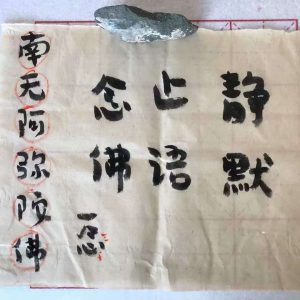 静默
止语
念佛
南无阿弥陀佛